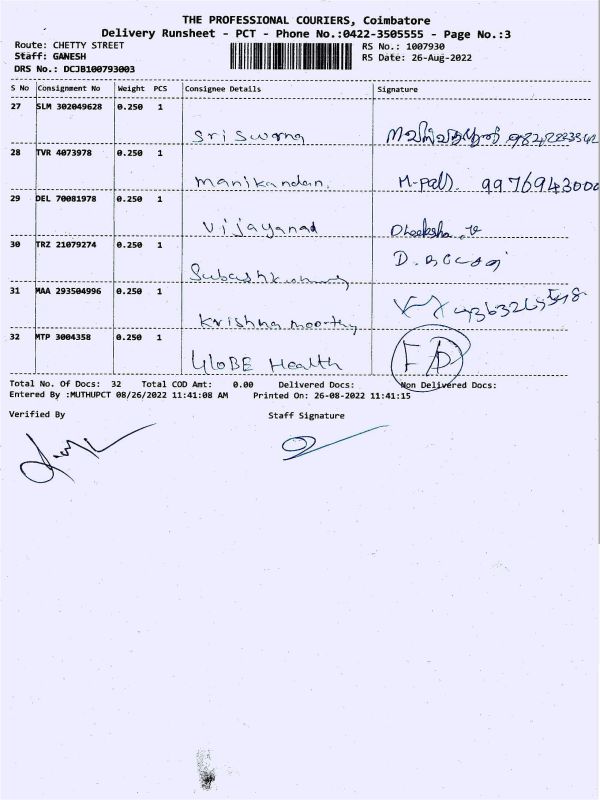 THE PROFESSIONAL COURIERS, Coimbatore
Delivery Runsheet - PCT - Phone No.:0422-3505555 - Page No.:3
Route: CHETTY STREET RS No.: 1007930
Staff: GANESH RS Date: 26-Aug-2022
DRS No.: DCJB100793003
S No Consignment No Weight PCS Consignee Details Signature
27 SLM 302049628 0.250 1
Sri Swarna
28 TVR 4073978 0.250 1
manikandan. 9976943000
29 DEL 70081978 0.250 1
Vijayanad
30 TRZ 21079274 0.250 1 D.
31 MAA 293504996 0.250 1
Krishna moorthy
32 MTP 3004358 0.250 1
GLOBE Health
Total No. Of Docs: 32 Total COD Amt: 0.00 Delivered Docs: Non Delivered Docs:
Entered By :MUTHUPCT 08/26/2022 11:41:08 AM Printed On: 26-08-2022 11:41:15
Verified By Staff Signature